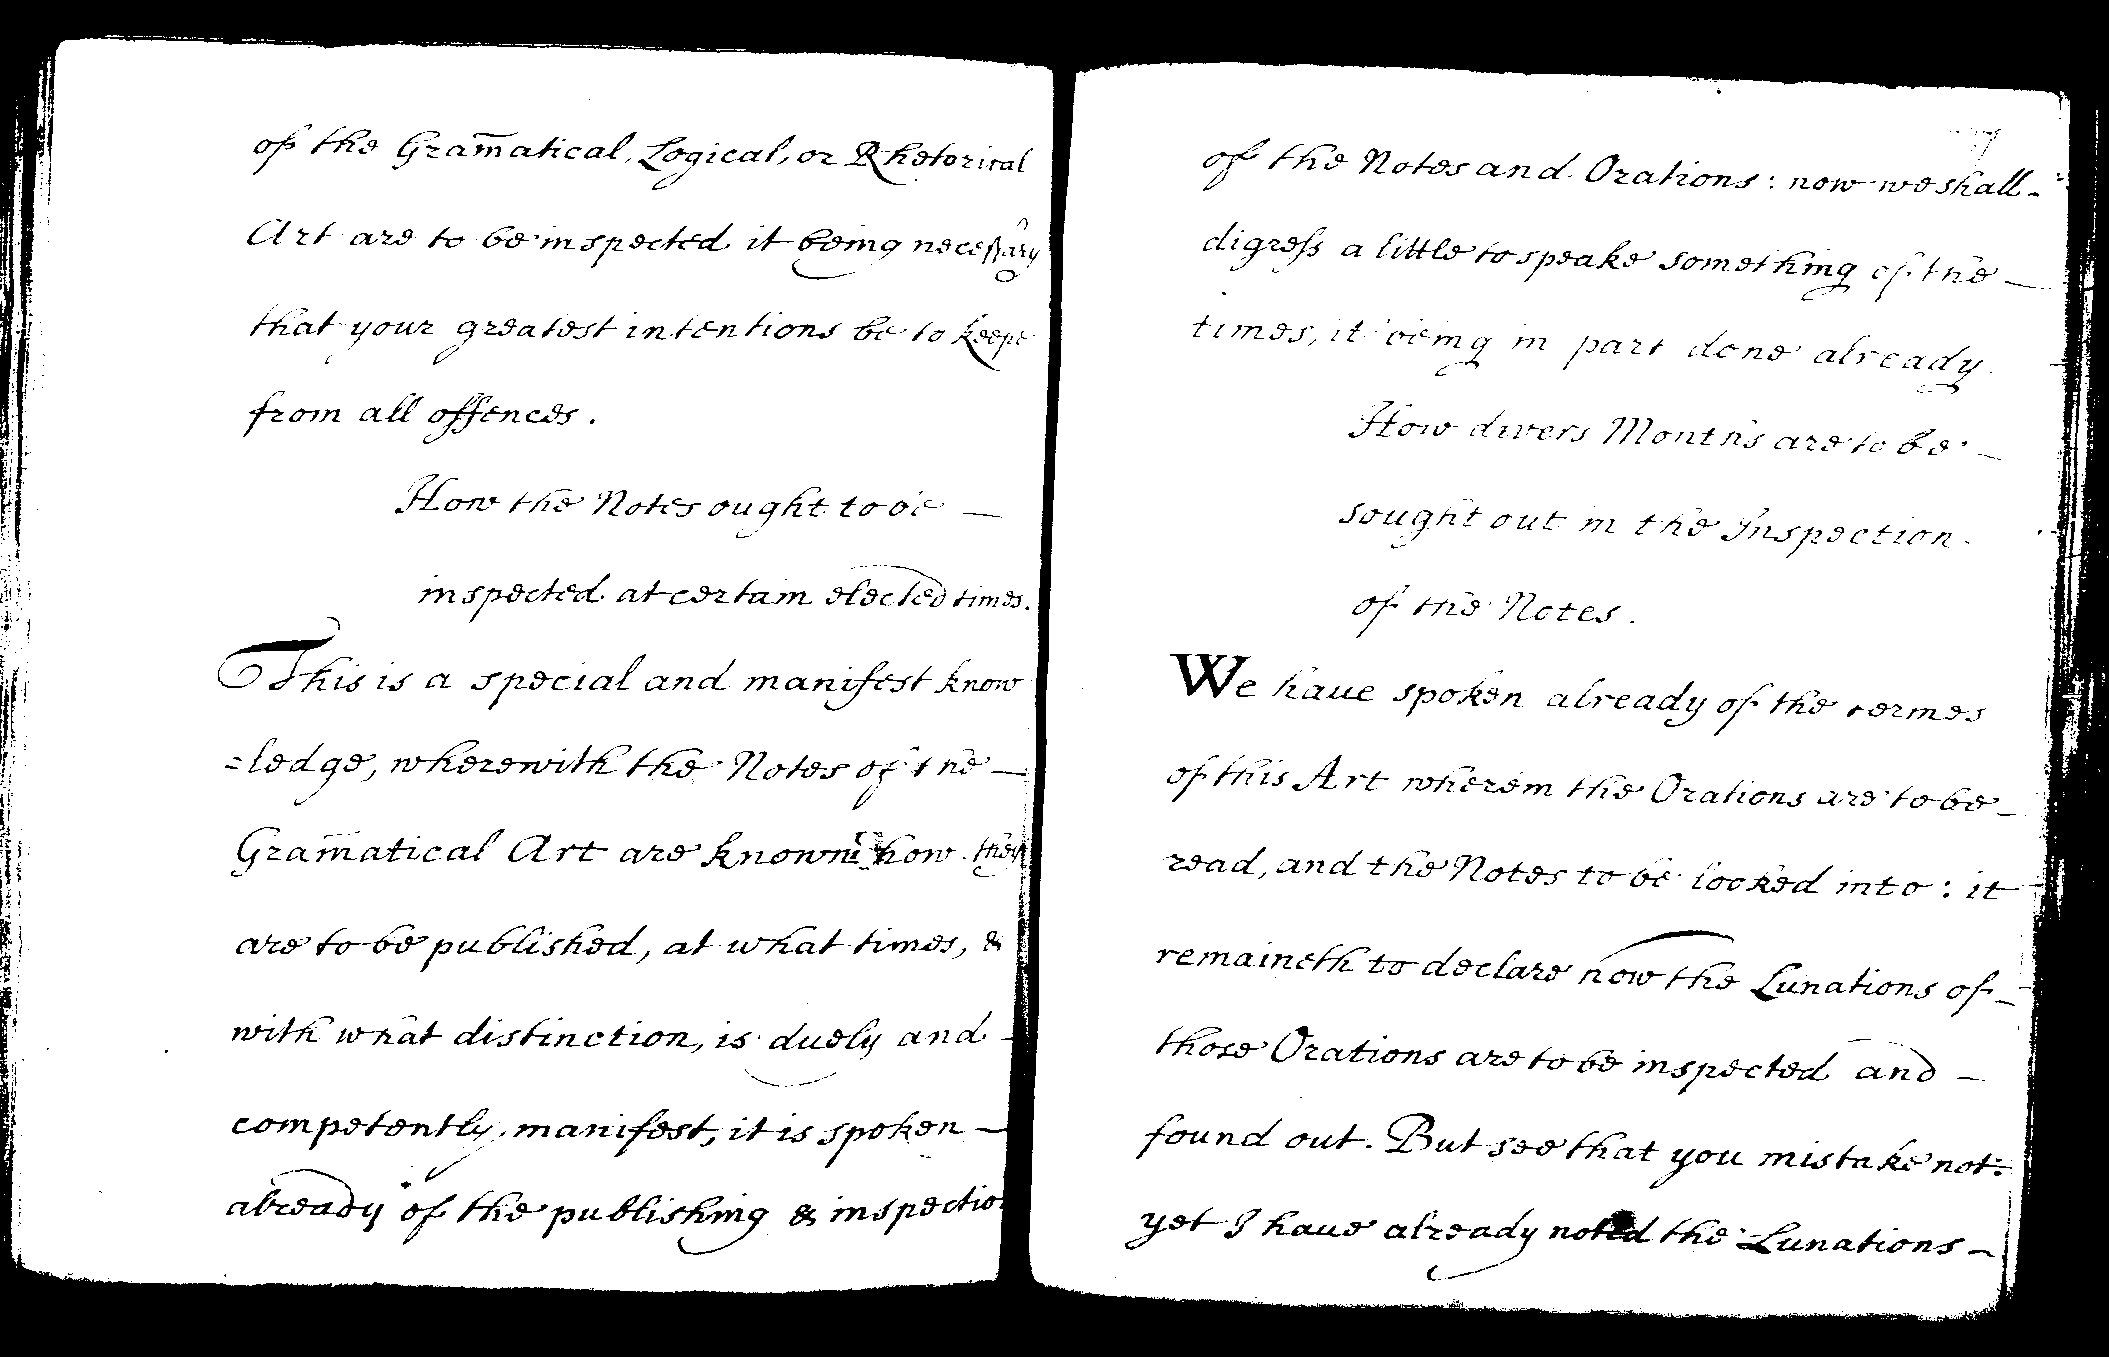 of the Gram̄atical, Logical, or Rhetorical
Art are to be inspected it being necessary
that your greatest intentions be to keepe
from all offences.
How the Notes ought to be —
inspected at certain elected times.
This is a special and manifest know
=ledge, wherewith the Notes of the —
Gram̄atical Art are known how they
are to be published, at what times, &
with what distinction, is duely and -
competently manifest, it is spoken —
already of the publishing & inspection
of the Notes and Orations: now we shall -
digress a little to speake something of the —
times, it being in part done already.
How divers Months are to be —
sought out in the Inspection
of the Notes.
We haue spoken already of the termes
of this Art wherein the Orations are to be —
read, and the Notes to be looked into: it
remaineth to declare how the Lunations of —
those Orations are to be inspected and —
found out. But see that you mistake not:
yet I haue already noted the Lunations —